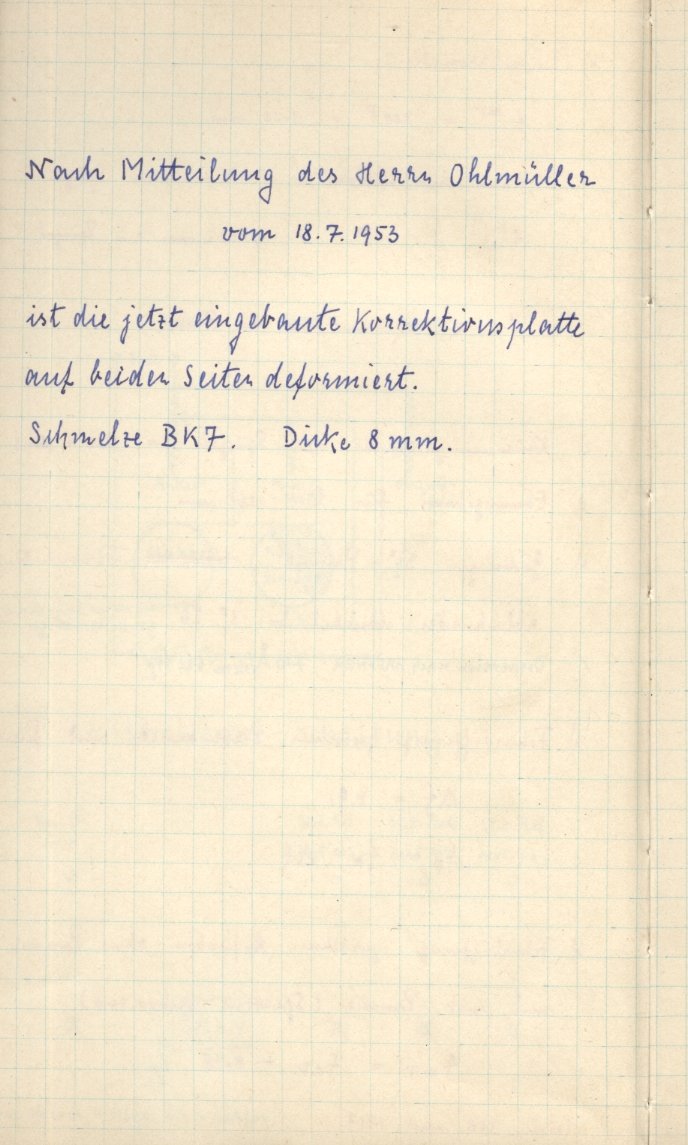 Nach Mitteilung des Herrn Ohlmüller
vom 18.7.1953
ist die jetzt eingebaute Korrektionsplatte
auf beiden Seiten deformiert.
Schmelze BK7. Dicke 8 mm.